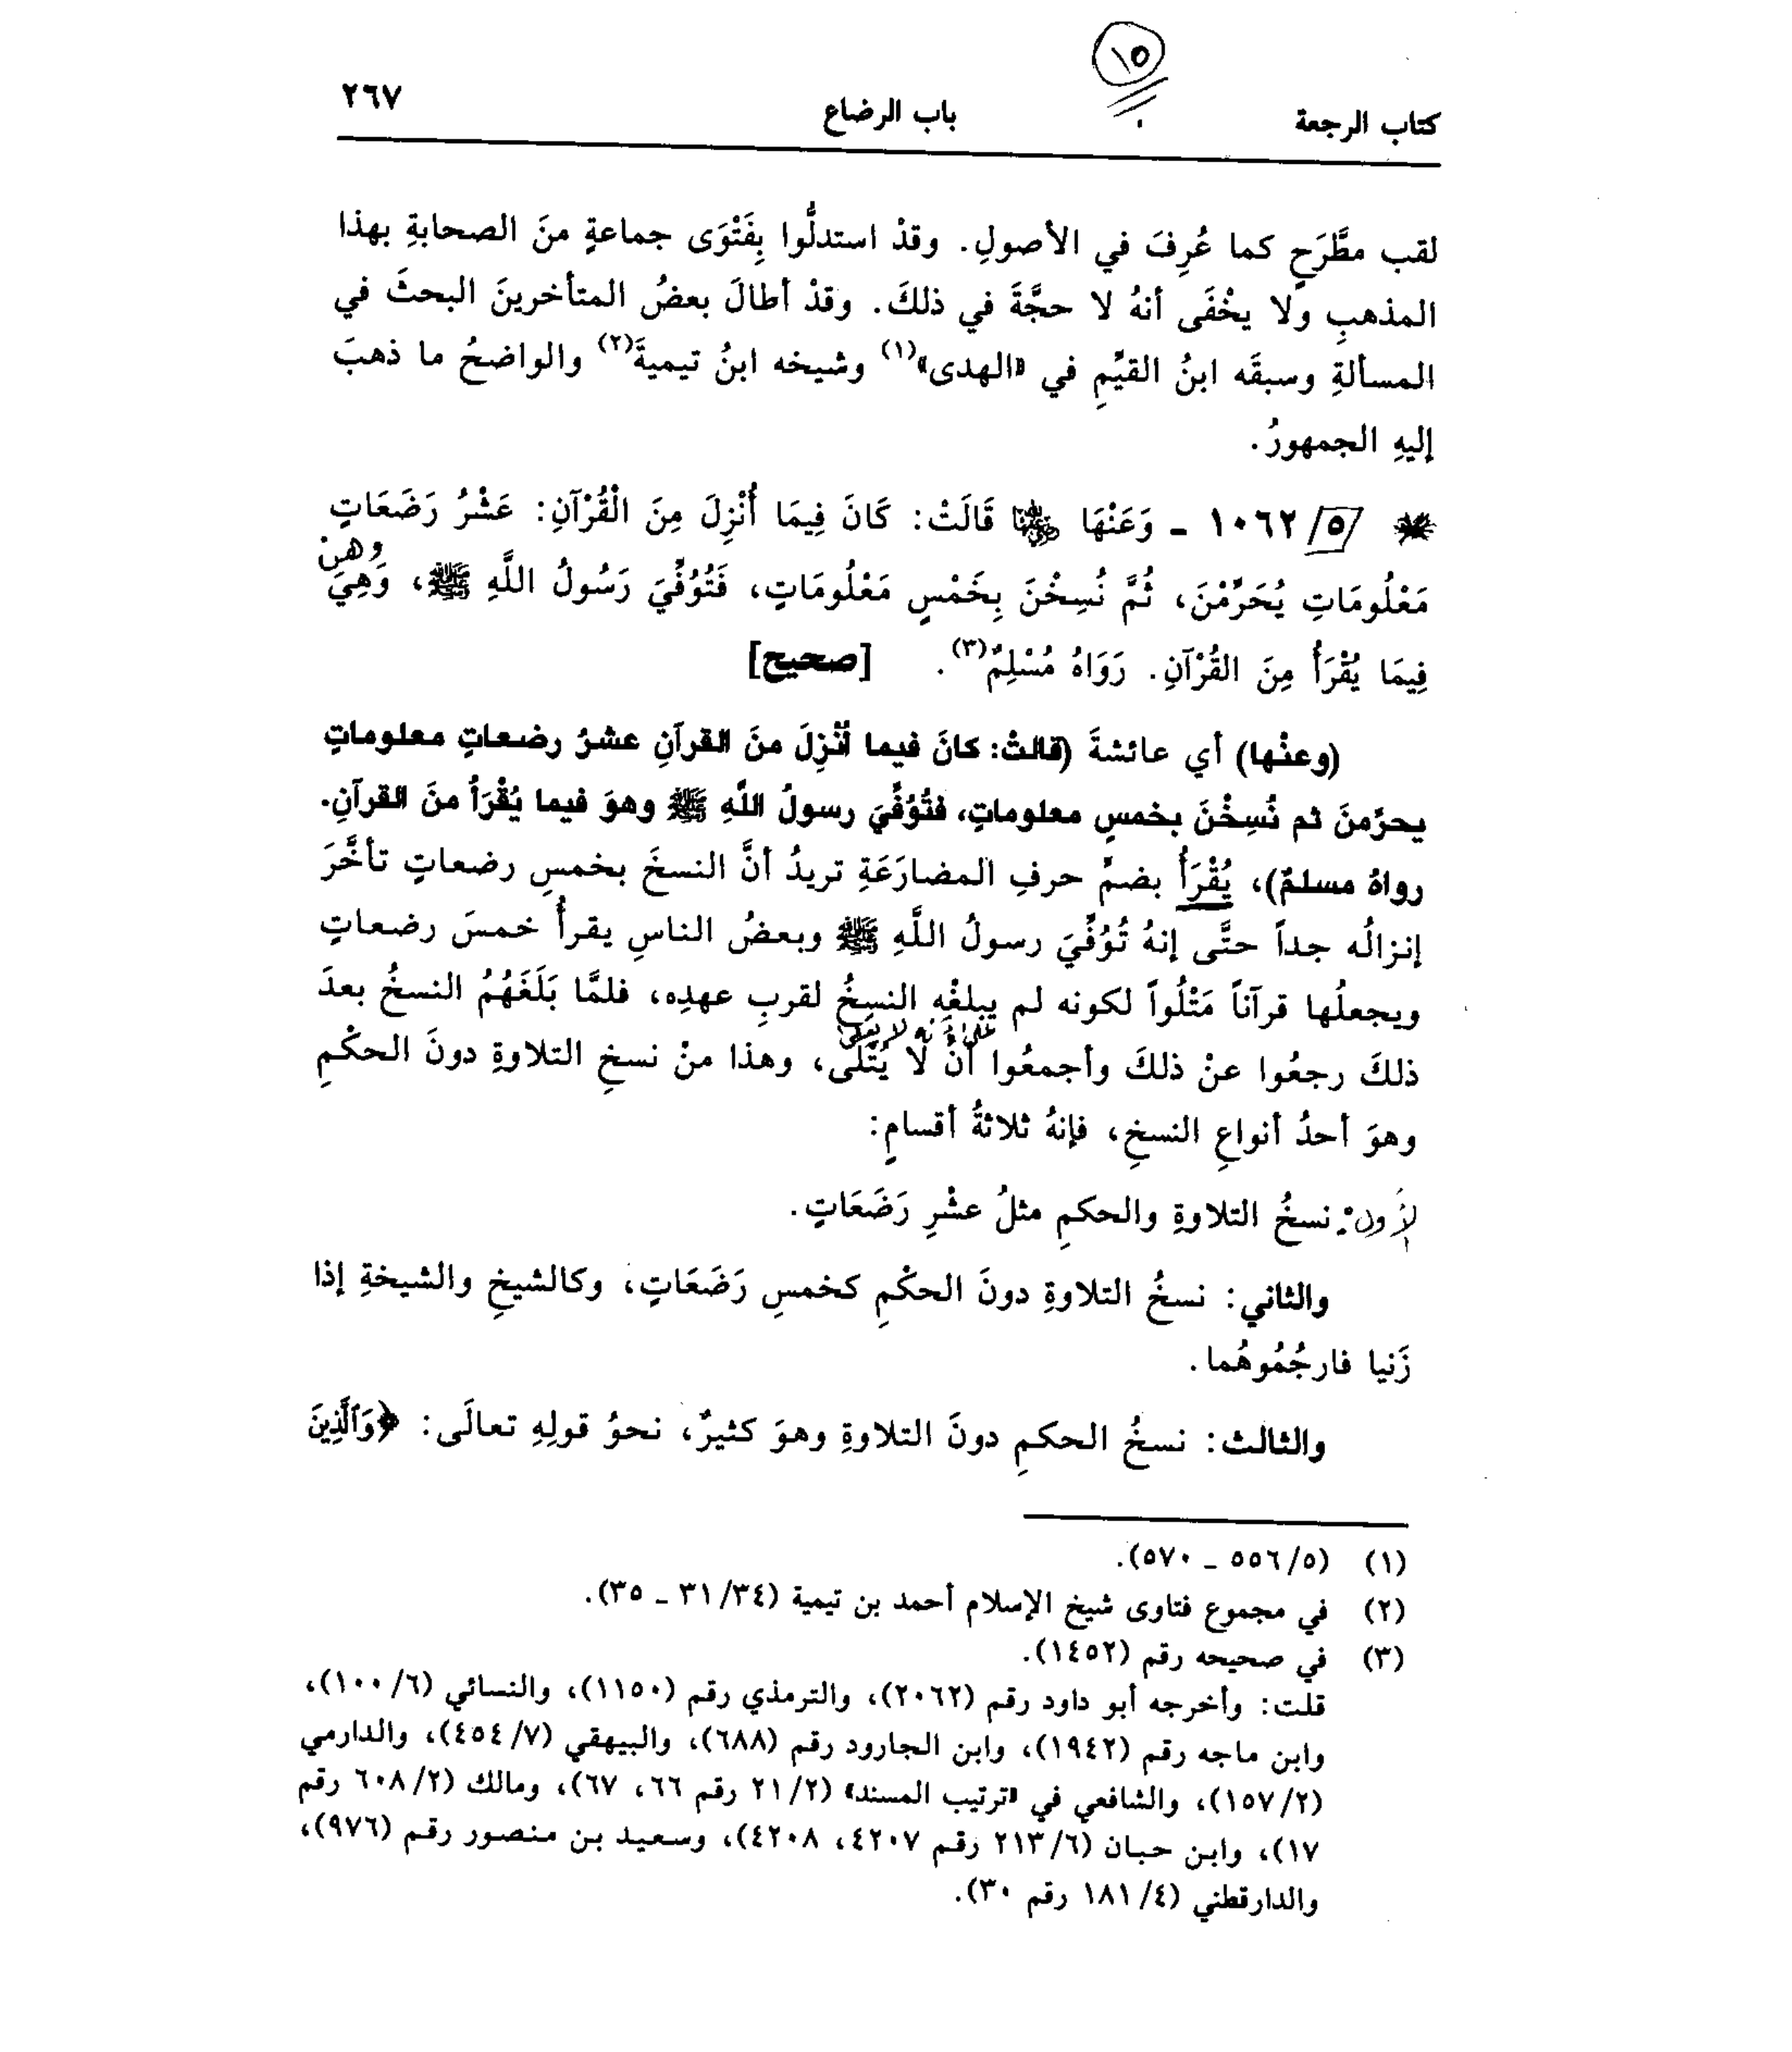 ١٥
كتاب الرجعة باب الرضاع ٢٦٧
لقب مطَّرَحٍ كما عُرِفَ في الأصولِ. وقدْ استدلُّوا بِفَتْوَى جماعةٍ منَ الصحابةِ بهذا
المذهبِ ولا يخْفَى أنهُ لا حجَّةَ في ذلكَ. وقدْ أطالَ بعضُ المتأخرينَ البحثَ في
المسألةِ وسبقَه ابنُ القيِّمِ في «الهدى»(١) وشيخه ابنُ تيميةَ(٢) والواضحُ ما ذهبَ
إليهِ الجمهورُ.
٥/ ١٠٦٢ - وَعَنْهَا رضي الله عنها قَالَتْ: كَانَ فِيمَا أُنْزِلَ مِنَ الْقُرْآنِ: عَشْرُ رَضَعَاتٍ
وهنّ
مَعْلُومَاتِ يُحَرِّمْنَ، ثُمَّ نُسِخْنَ بِخَمْسٍ مَعْلُومَاتٍ، فَتُوُفِّيَ رَسُولُ اللَّهِ ﷺ، وَهِيَ
فِيمَا يُقْرَأُ مِنَ القُرْآنِ. رَوَاهُ مُسْلِمٌ(٣). [صحيح]
(وعنْها) أي عائشةَ (قالتْ: كانَ فيما أُنْزِلَ منَ القرآنِ عشرُ رضعاتٍ معلوماتٍ
يحرِّمنَ ثم نُسِخْنَ بخمسٍ معلوماتٍ، فتُوُفِّيَ رسولُ اللَّهِ ﷺ وهوَ فيما يُقْرَأُ منَ القرآنِ.
رواهُ مسلمٌ)، يُقْرَأُ بضمِّ حرفِ المضارَعَةِ تريدُ أنَّ النسخَ بخمسِ رضعاتٍ تأخَّرَ
إنزالُه جداً حتَّى إنهُ تُوُفِّيَ رسولُ اللَّهِ ﷺ وبعضُ الناسِ يقرأُ خمسَ رضعاتٍ
ويجعلُها قرآناً مَتْلُواً لكونه لم يبلغْه النسخُ لقربِ عهدِه، فلمَّا بَلَغَهُمُ النسخُ بعدَ
على أنه لا يتلى
ذلكَ رجعُوا عنْ ذلكَ وأجمعُوا أنْ لَا يُتْلَى، وهذا منْ نسخِ التلاوةِ دونَ الحكْمِ
وهوَ أحدُ أنواعِ النسخِ، فإنهُ ثلاثةُ أقسامٍ:
الأول: نسخُ التلاوةِ والحكمِ مثلُ عشْرِ رَضَعَاتٍ.
والثاني: نسخُ التلاوةِ دونَ الحكْمِ كخمسِ رَضَعَاتٍ، وكالشيخِ والشيخةِ إذا
زَنيا فارجُمُوهُما.
والثالث: نسخُ الحكمِ دونَ التلاوةِ وهوَ كثيرٌ، نحوُ قولِهِ تعالَى: ﴿وَالَّذِينَ
(١) (٥/ ٥٥٦ - ٥٧٠).
(٢) في مجموع فتاوى شيخ الإسلام أحمد بن تيمية (٣٤/ ٣١ - ٣٥).
(٣) في صحيحه رقم (١٤٥٢).
قلت: وأخرجه أبو داود رقم (٢٠٦٢)، والترمذي رقم (١١٥٠)، والنسائي (٦/ ١٠٠)،
وابن ماجه رقم (١٩٤٢)، وابن الجارود رقم (٦٨٨)، والبيهقي (٧/ ٤٥٤)، والدارمي
(٢/ ١٥٧)، والشافعي في «ترتيب المسند» (٢/ ٢١ رقم ٦٦، ٦٧)، ومالك (٢/ ٦٠٨ رقم
١٧)، وابن حبان (٦/ ٢١٣ رقم ٤٢٠٧، ٤٢٠٨)، وسعيد بن منصور رقم (٩٧٦)،
والدارقطني (٤/ ١٨١ رقم ٣٠).